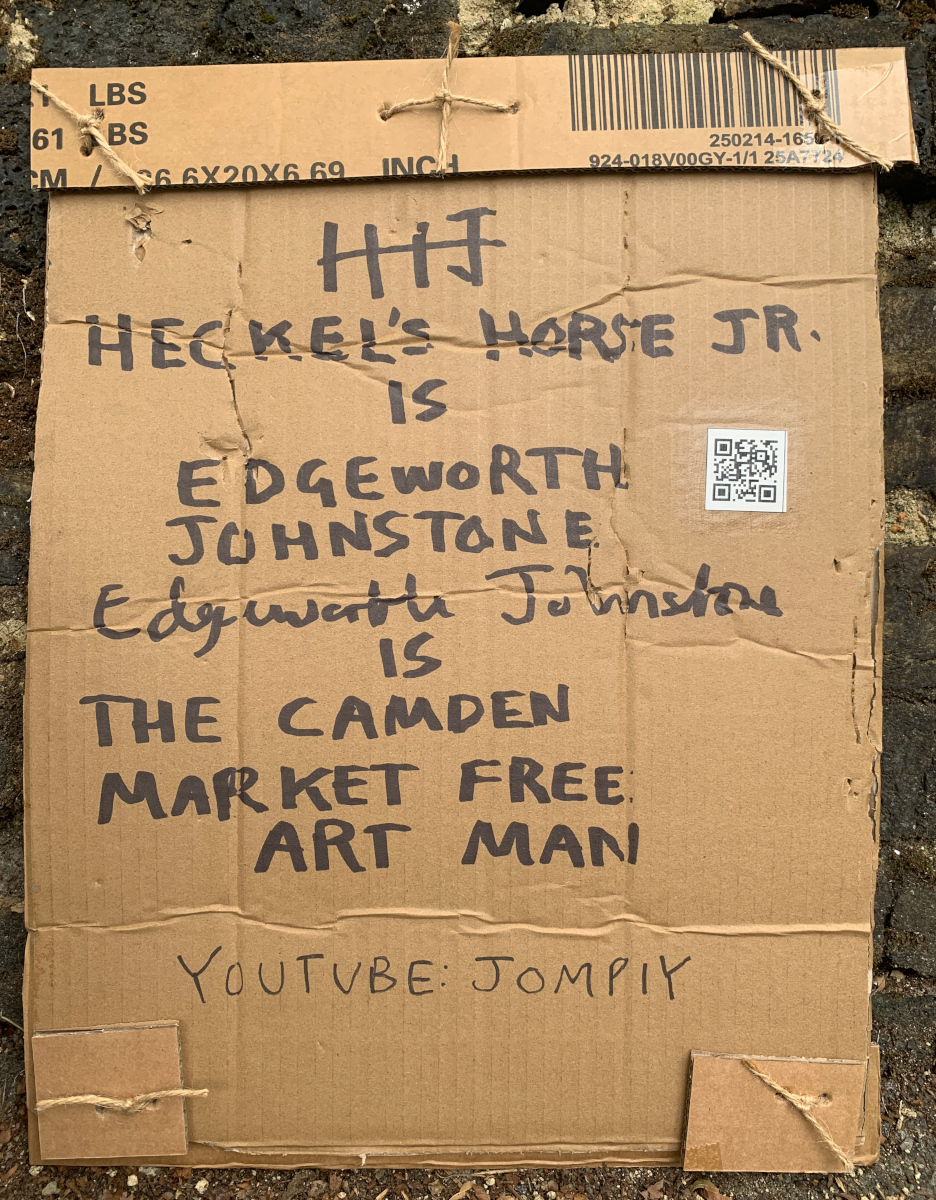 LBS
61 LBS
CM / 66.6X20X6.69 INCH
924-018V00GY-1/1 25A7724
HHJ
HECKEL'S HORSE JR.
IS
EDGEWORTH
JOHNSTONE
Edgeworth Johnstone
IS
THE CAMDEN
MARKET FREE
ART MAN
YOUTUBE: JOMPIY